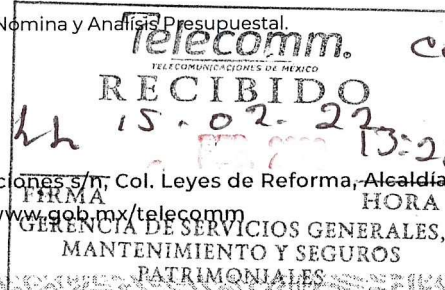 Nómina y Análisis Presupuestal.
Telecomm.
TELECOMUNICACIONES DE MEXICO
RECIBIDO
15.02.22
13:2
ciones s/n, Col. Leyes de Reforma, Alcaldía
FIRMA
HORA
www.gob.mx/telecomm
GERENCIA DE SERVICIOS GENERALES,
MANTENIMIENTO Y SEGUROS
PATRIMONIALES